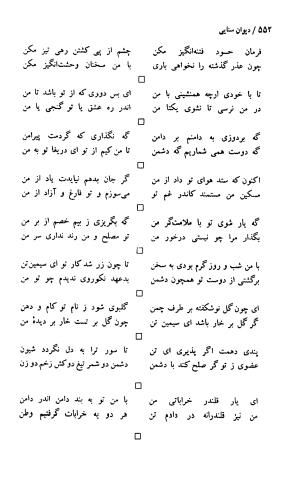 ۵۵۲ / دیوان سنایی
فرمان حسود فتنه‌انگیز مکن چشم از پی کشتن رهی تیز مکن
چون عذر گذشته را نخواهی باری با من سخنان وحشت‌انگیز مکن
با خودی ارچه همنشینی با من ای بس دوری که از تو باشد تا من
در من نرسی تا نشوی یکتا من اندر ره عشق یا تو گنجی یا من
گه بردوزی به دامنم بر دامن گه نگذاری که گردمت پیرامن
گه دوست همی شماریم گه دشمن تا من کیم از تو ای دریغا تو به من
اکنون که ستد هوای تو داد از من گر جان بدهم نیایدت یاد از من
مسکین من مستمند کاندر غم تو می‌سوزم و تو فارغ و آزاد از من
گه یار شوی تو با ملامت‌گر من گه بگریزی ز بیم خصم از بر من
بگذار مرا چو نیستی درخور من تو مصلح و من رند نداری سر من
با من شب و روز گرم بودی به سخن تا چون زر شد کار تو ای سیمین‌تن
برگشتی از دوست تو همچون دشمن بدعهد نکوروی ندیدم چو تو من
ای چون گل نوشکفته بر طرف چمن گلبوی شود ز نام تو کام و دهن
گر گل بر خار باشد ای سیمین تن چون گل بر تست خار بر دیدهٔ من
پندی دهمت اگر پذیری ای تن تا سور ترا به دل نگردد شیون
عضوی ز تو گر صلح کند با دشمن دشمن دو شمر تیغ دو کش زخم دو زن
ای یار قلندر خراباتی من با من تو به بند دامن اندر دامن
من نیز قلندرانه در دادم تن هر دو به خرابات گرفتیم وطن